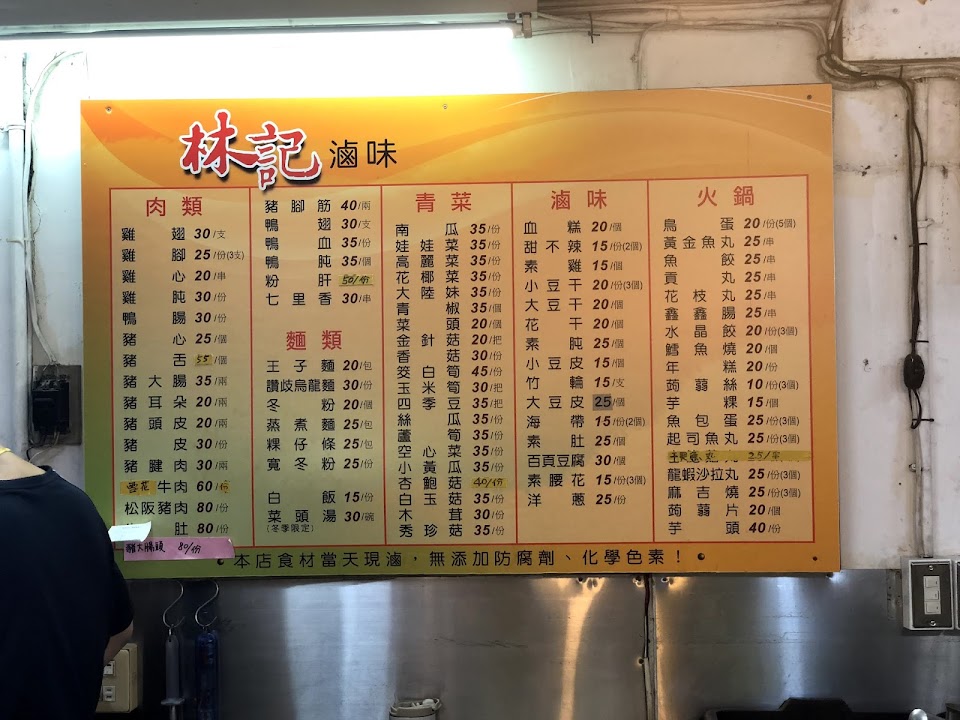 林記 滷味
肉類
雞翅 30/支
雞腳 25/份(3支)
雞心 20/串
雞肫 30/份
鴨腸 30/份
豬心 25/個
豬舌 55/個
豬大腸 35/兩
豬耳朵 20/兩
豬頭皮 20/兩
豬皮 30/份
豬腱肉 30/兩
雪花牛肉 60/份
松阪豬肉 80/份
肚 80/份
豬腳筋 40/兩
鴨翅 30/支
鴨血 35/份
鴨肫 35/個
粉肝 50/份
七里香 30/串
麵類
王子麵 20/包
讚歧烏龍麵 30/份
冬粉 20/個
蒸煮麵 25/包
粿仔條 25/包
寬冬粉 25/份
白飯 15/份
菜頭湯 30/碗
(冬季限定)
青菜
南瓜 35/份
娃娃菜 35/份
高麗菜 35/份
花椰菜 35/份
大陸妹 35/份
青椒 35/個
菜頭 20/個
金針菇 20/把
香菇 30/份
筊白筍 45/份
玉米筍 30/把
四季豆 35/把
絲瓜 35/份
蘆筍 35/份
空心菜 35/份
小黃瓜 35/份
杏鮑菇 40/份
白玉菇 35/份
木茸 30/份
秀珍菇 35/份
滷味
血糕 20/個
甜不辣 15/份(2個)
素雞 15/個
小豆干 20/份(3個)
大豆干 20/個
花干 20/個
素肫 25/個
小豆皮 15/個
竹輪 15/支
大豆皮 25/個
海帶 15/份(2個)
素肚 25/個
百頁豆腐 30/個
素腰花 15/份(3個)
洋蔥 25/份
火鍋
鳥蛋 20/份(5個)
黃金魚丸 25/串
魚餃 25/串
貢丸 25/串
花枝丸 25/串
鑫鑫腸 25/串
水晶餃 20/份(3個)
鱈魚燒 20/個
年糕 20/份
蒟蒻絲 10/份(3個)
芋粿 15/個
魚包蛋 25/份(3個)
起司魚丸 25/份(3個)
25/串
龍蝦沙拉丸 25/份(3個)
麻吉燒 25/份(3個)
蒟蒻片 20/個
芋頭 40/份
大腸頭 80/份
• 本店食材當天現滷，無添加防腐劑、化學色素！ •